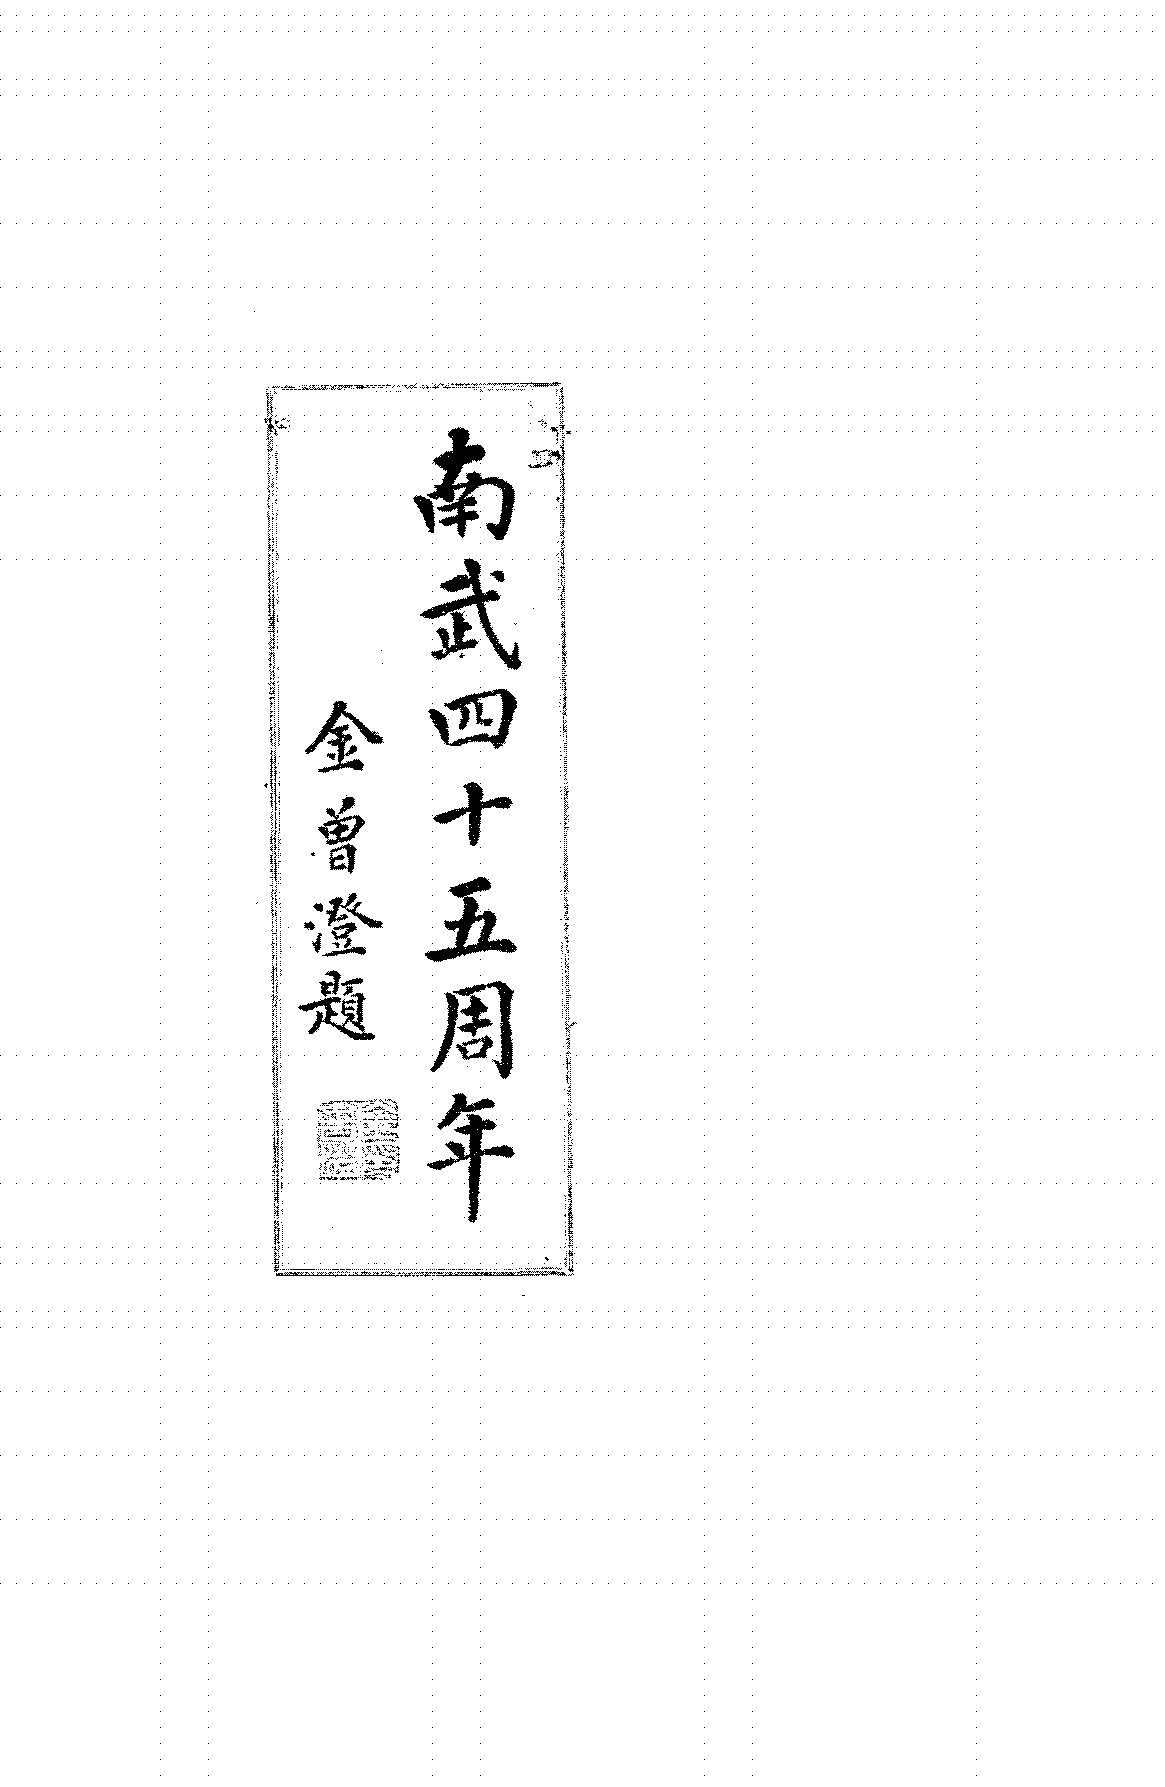 南武四十五周年
金曾澄題